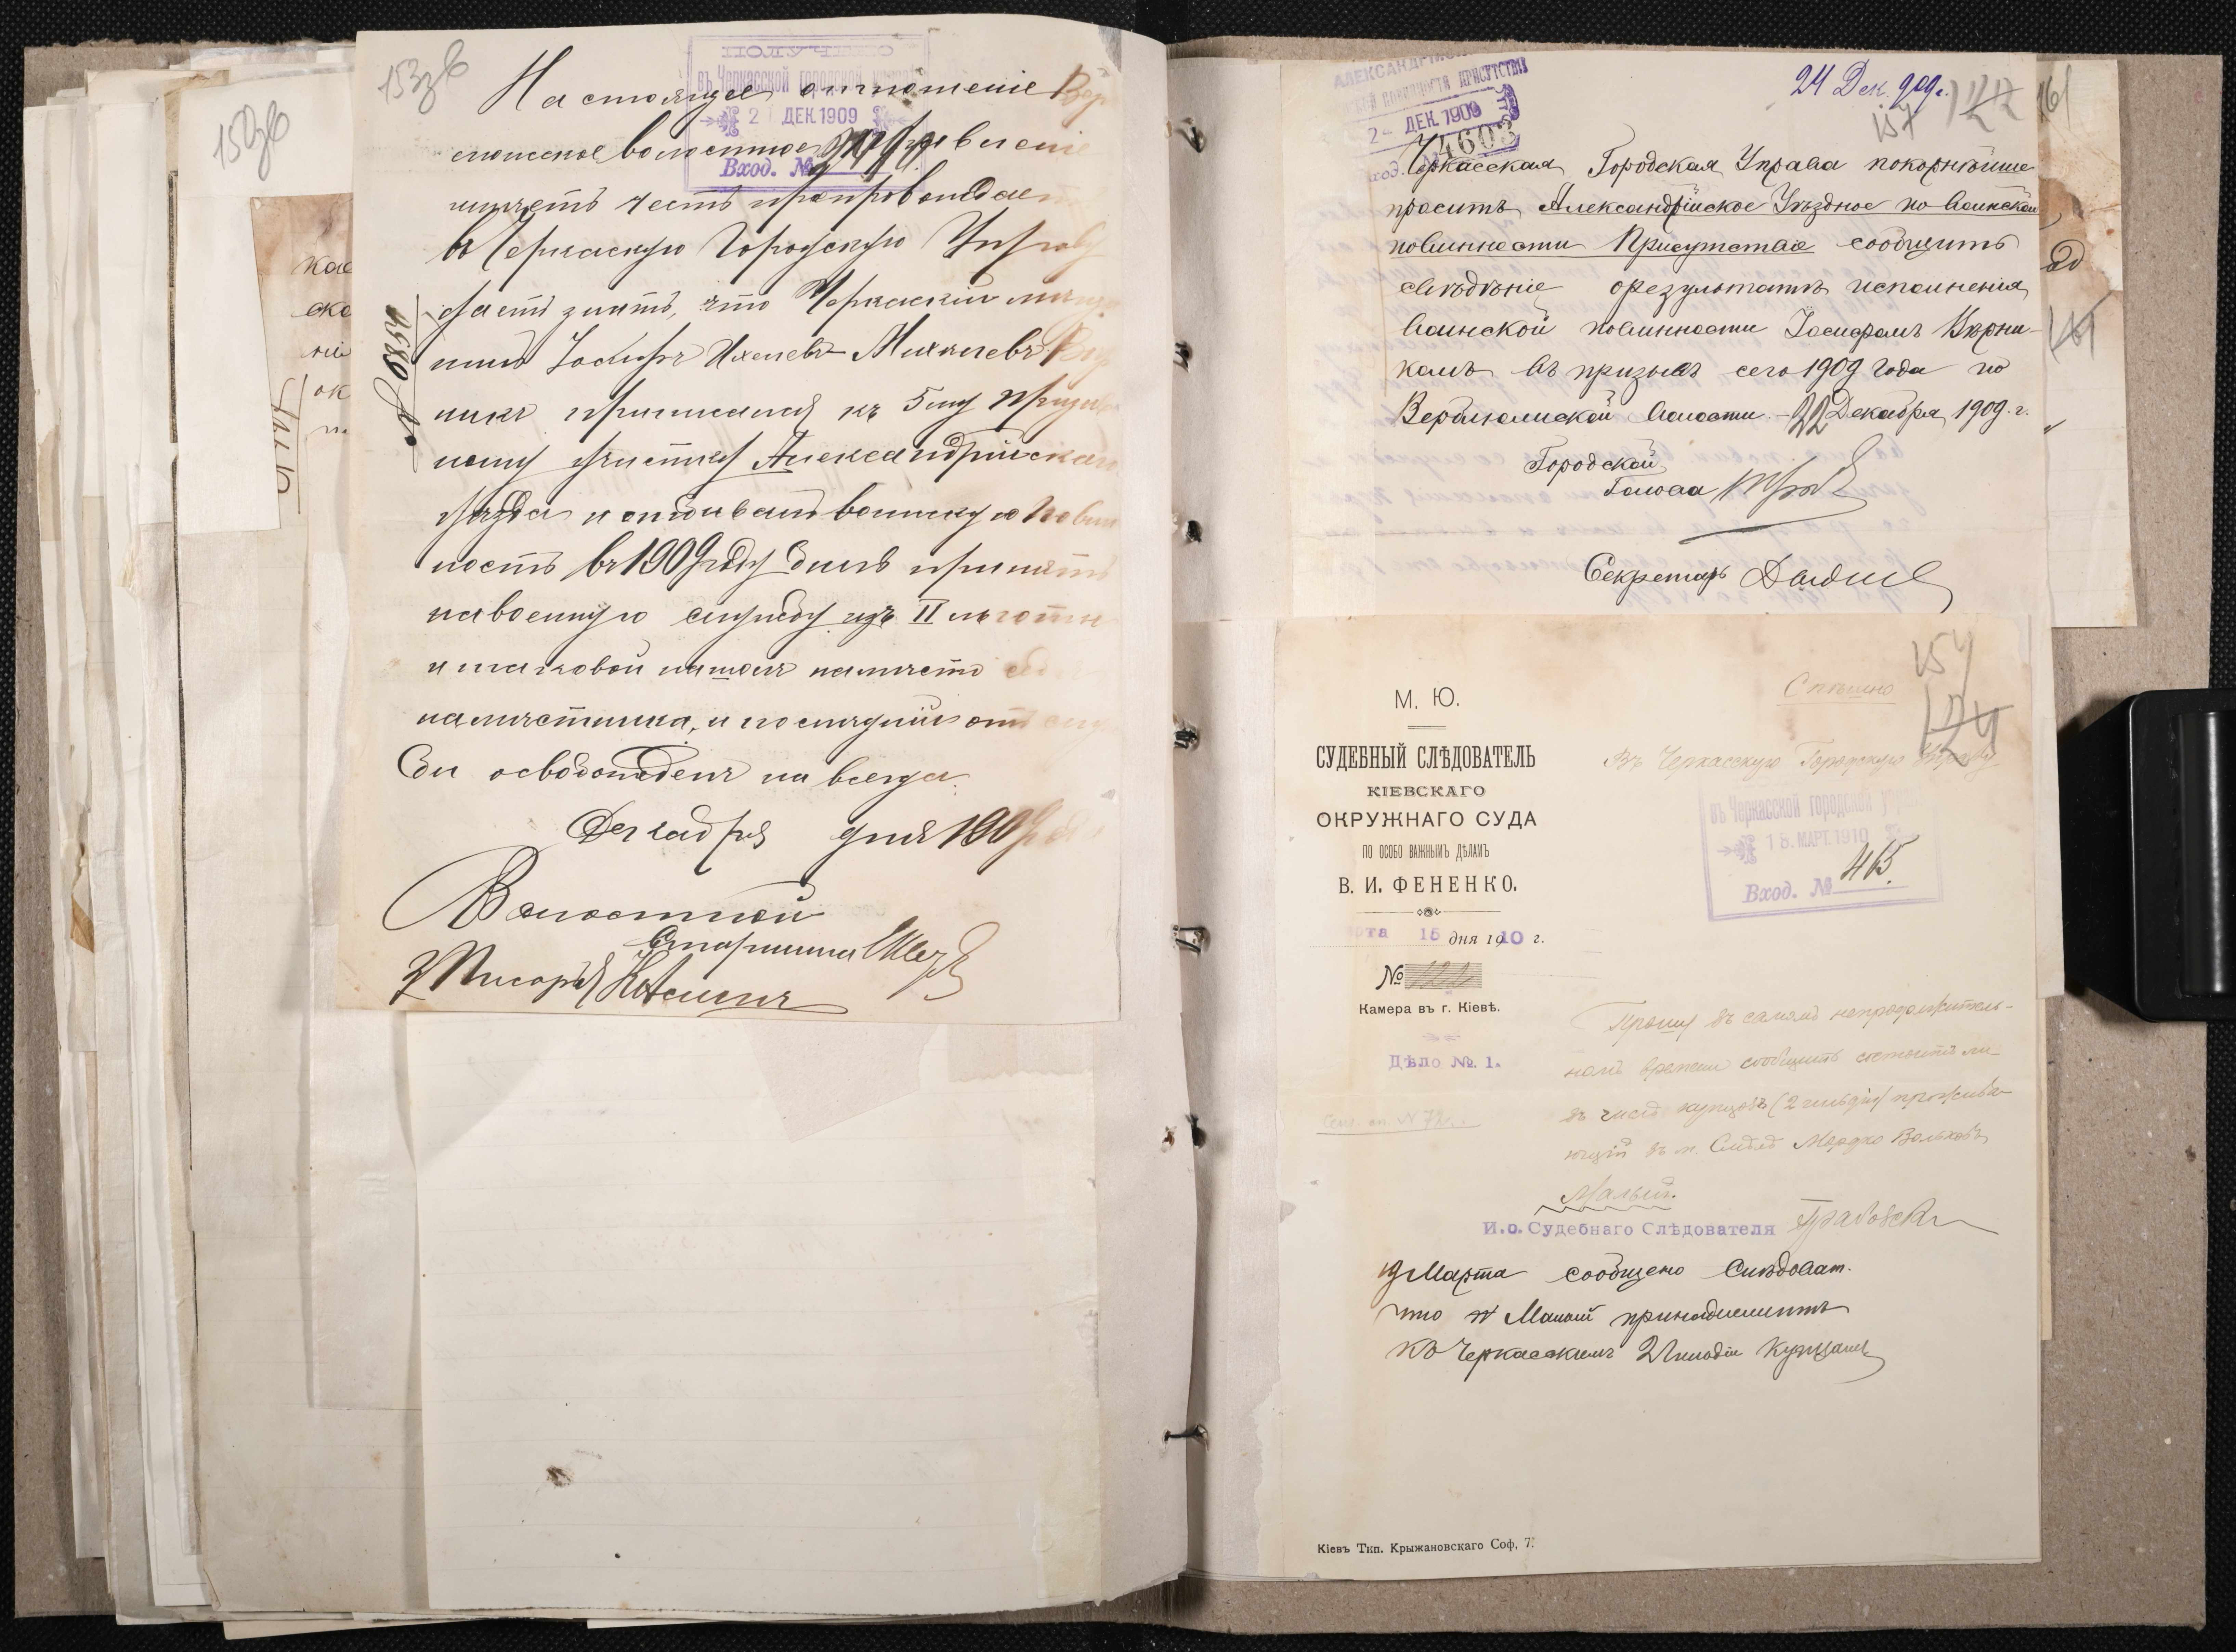 153 об
150 об
ПОЛУЧЕНО
въ Черкасской городской
2 ДЕК. 1909
Вход. №
Настоящее отношеніе Вер
люжское волостное правленіе
имѣетъ честь препроводить
въ Черкаскую Городскую Управу
даетъ знать, что Черкаскій мѣща
нинъ Іосифъ Ихелевъ Михелевъ
никъ приписался къ 5му призыв
ному участку Александрійскаго
уѣзда и отбывалъ воинскую повин
ность въ 1909 году былъ принятъ
на военную службу изъ II льготн
и таковой нашелъ намѣсто себя
намѣстника, и послѣдній отъ служ
бы освобожденъ на всегда.
Декабря дня 1909 года
№ 9580
Волостной
Старшина
Писарь
кае
ско
ок
АЛЕКСАНДРІЙСК
ПОВИННОСТИ ПРИСУТСТВІЯ
2 - ДЕК. 1909
4603
24 Дек. 909 г.
157
122
161
Черкасская Городская Управа покорнѣйше
проситъ Александрійское Уѣздное по воинской
повинности Присутствіе сообщить
свѣдѣніе о результатѣ исполненія
воинской повинности Іосифомъ Вѣрни-
комъ въ призывъ сего 1909 года по
Верблюжской волости. - 22 Декабря 1909. г.
Городской
Голова
Секретарь
М. Ю.
СУДЕБНЫЙ СЛѢДОВАТЕЛЬ
КІЕВСКАГО
ОКРУЖНАГО СУДА
ПО ОСОБО ВАЖНЫМЪ ДѢЛАМЪ
В. И. ФЕНЕНКО.
рта 15 дня 1910 г.
№ 122
Камера въ г. Кіевѣ.
Дѣло № 1.
Спѣшно
124
Въ Черкасскую Городскую Управу
въ Черкасской городской упр
15. МАРТ. 1910
Вход. № 415.
Прошу въ самомъ непродолжитель-
номъ времени сообщить состоитъ ли
въ числѣ купцовъ (2 гильдіи) прожива-
ющій въ м. Смѣлѣ Мордко Вольковъ
Малый.
И.о. Судебнаго Слѣдователя
19 Марта сообщено Слѣдоват.
что Малый принадлежитъ
къ Черкасскимъ 2 гильдіи купцамъ
Кіевъ Тип. Крыжановскаго Соф, 7.